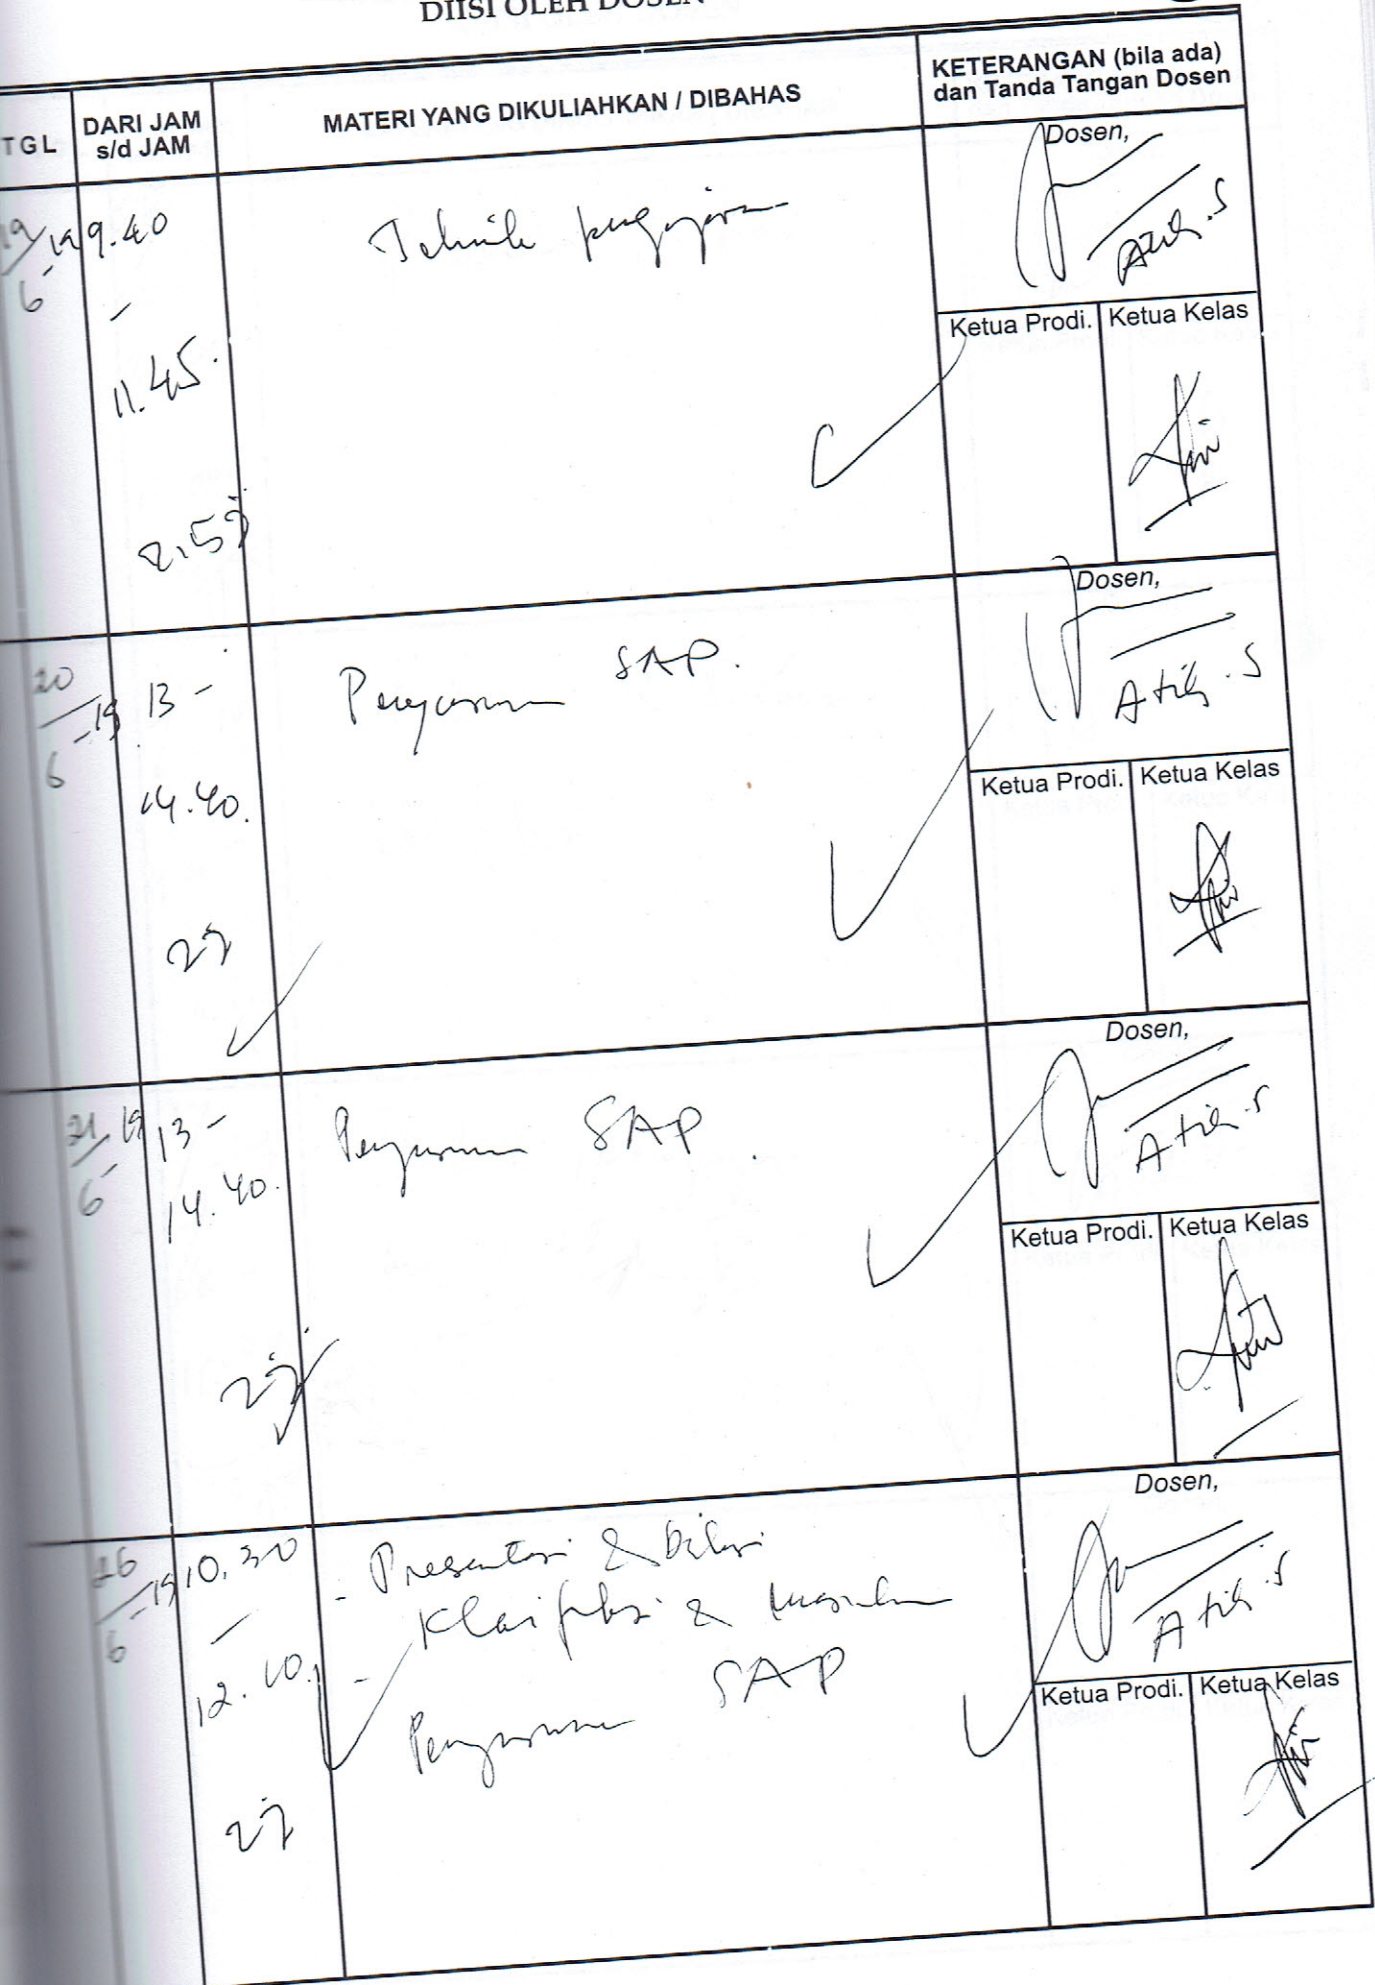 DIISI OLEH DOSEN
TGL
DARI JAM
s/d JAM
MATERI YANG DIKULIAHKAN / DIBAHAS
KETERANGAN (bila ada)
dan Tanda Tangan Dosen
19/6-19
9.40
-
11.45.
2.5j
Teknik pengajaran
Dosen,
Atik.S
Ketua Prodi.
Ketua Kelas
20/6-19
13 -
14.40.
2j
Penyusunan SAP.
Dosen,
Atik.S
Ketua Prodi.
Ketua Kelas
21/6-19
13 -
14.40.
2j
Penyusunan SAP.
Dosen,
Atik.S
Ketua Prodi.
Ketua Kelas
26/6-19
10.30
-
12.10.
2j
- Presentasi &
&
- Penyusunan SAP
Dosen,
Atik.S
Ketua Prodi.
Ketua Kelas